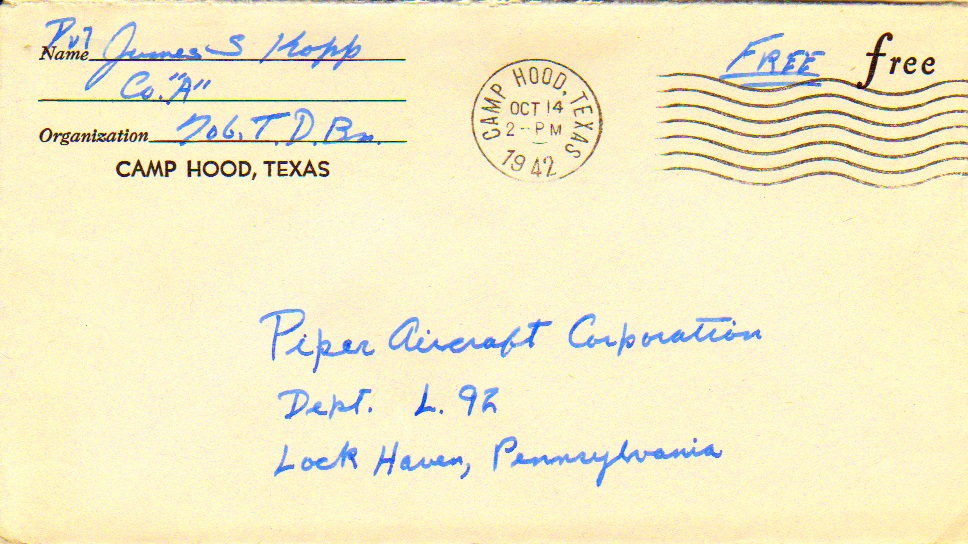 Pvt
Name James S Kopp
Co. "A"
Organization 706. T. D. Bn.
CAMP HOOD, TEXAS
CAMP HOOD, TEXAS
OCT 14
2-PM
1942
FREE free
Piper Aircraft Corporation
Dept. L. 92
Lock Haven, Pennsylvania